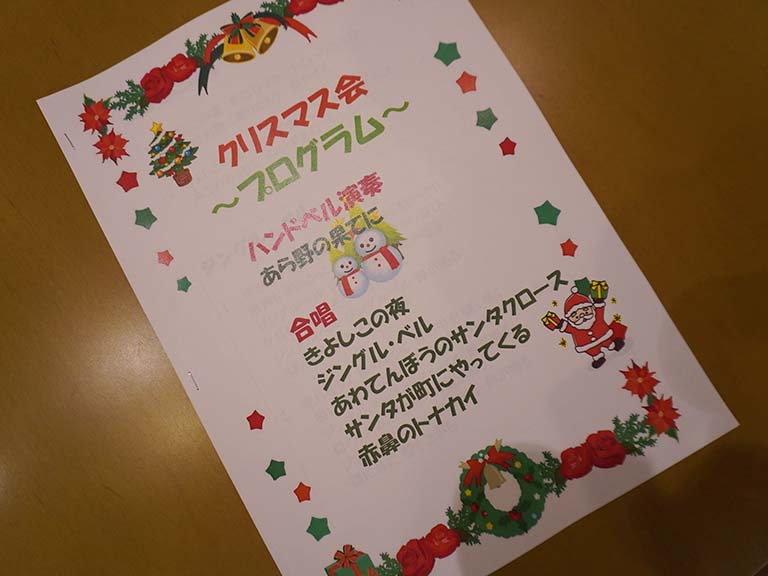 クリスマス会
～プログラム～
ハンドベル演奏
あら野の果てに
合唱
きよしこの夜
ジングル・ベル
あわてんぼうのサンタクロース
サンタが町にやってくる
赤鼻のトナカイ